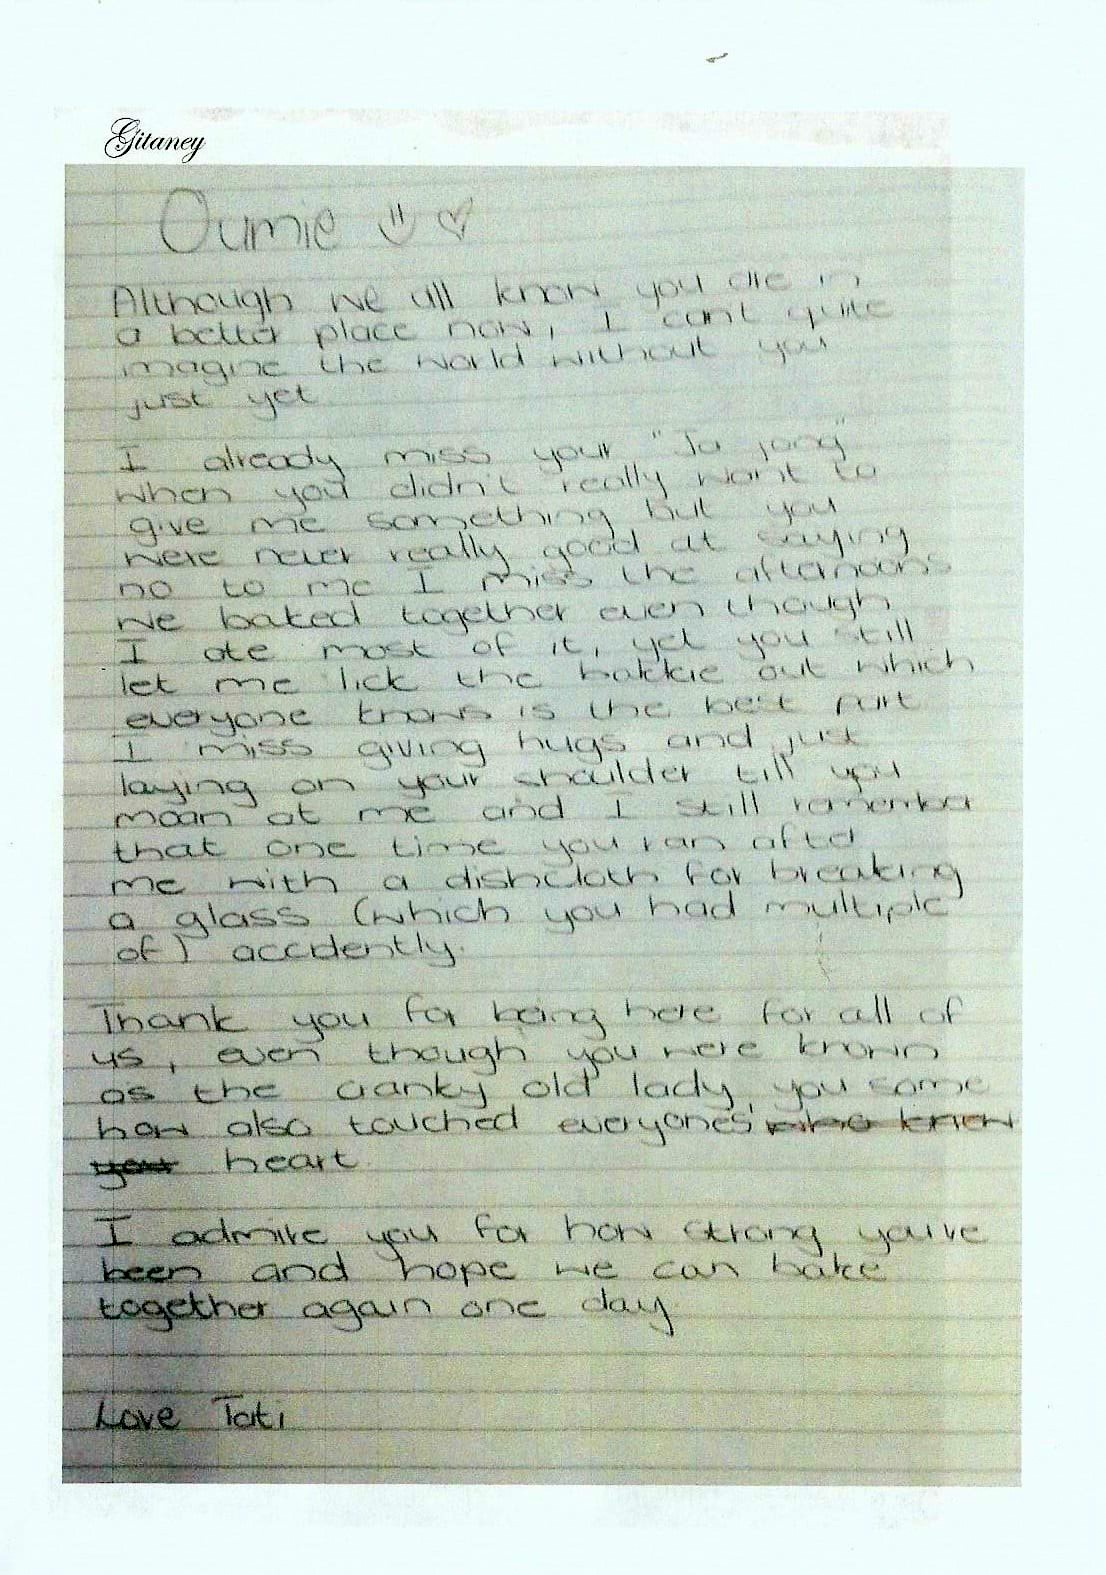 Gitaney
Oumie
Although we all know you are in
a better place now, I cant quite
imagine the world without you
just yet
I already miss your "Ja jong"
when you didn't really want to
give me something but you
were never really good at saying
no to me I miss the afternoons
we baked together even though
I ate most of it, yet you still
let me lick the bakkie out which
everyone knows is the best part
I miss giving hugs and just
laying on your shoulder till you
moan at me and I still remember
that one time you ran after
me with a dishcloth for breaking
a glass (which you had multiple
of) accidently.
Thank you for being here for all of
us, even though you were known
as the cranky old lady, you some
how also touched everyones who knew
you heart.
I admire you for how strong you've
been and hope we can bake
together again one day
Love Tati